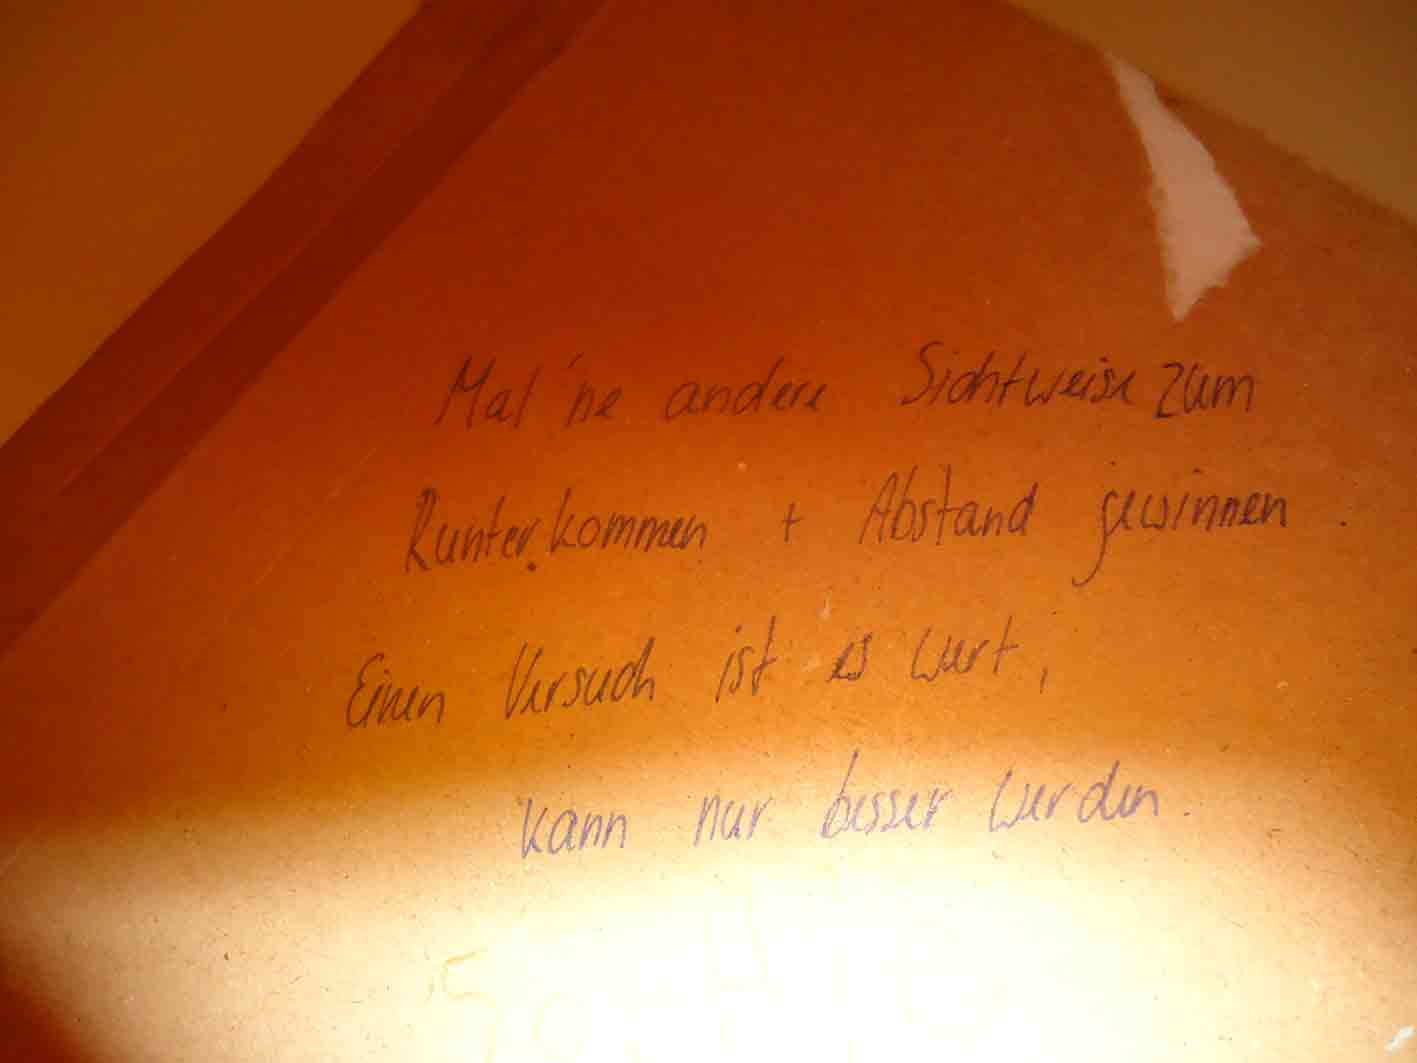 Mal 'ne andere Sichtweise zum
Runterkommen + Abstand gewinnen.
Einen Versuch ist es wert,
kann nur besser werden.